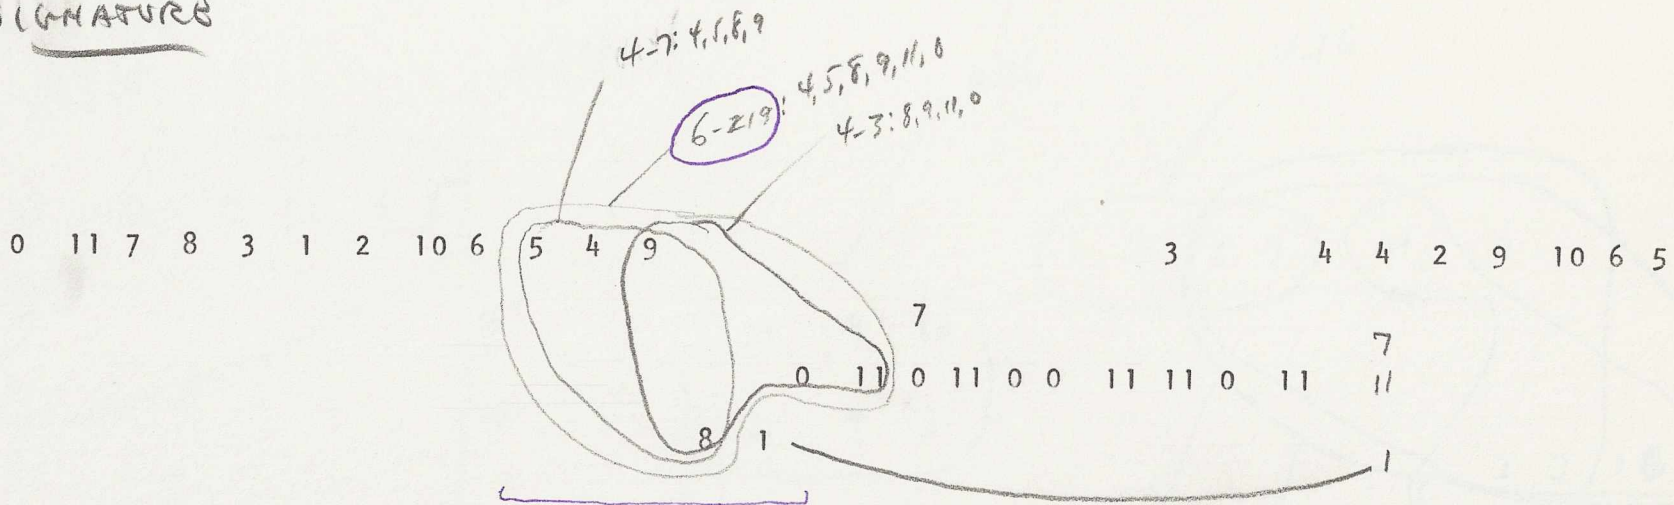 SIGNATURE
4-7: 4,5,8,9
6-Z19: 4,5,8,9,11,0
4-3: 8,9,11,0
0 11 7 8 3 1 2 10 6 5 4 9 3 4 4 2 9 10 6 5
7
7
0 11 0 11 0 0 11 11 0 11 11
8 1 1